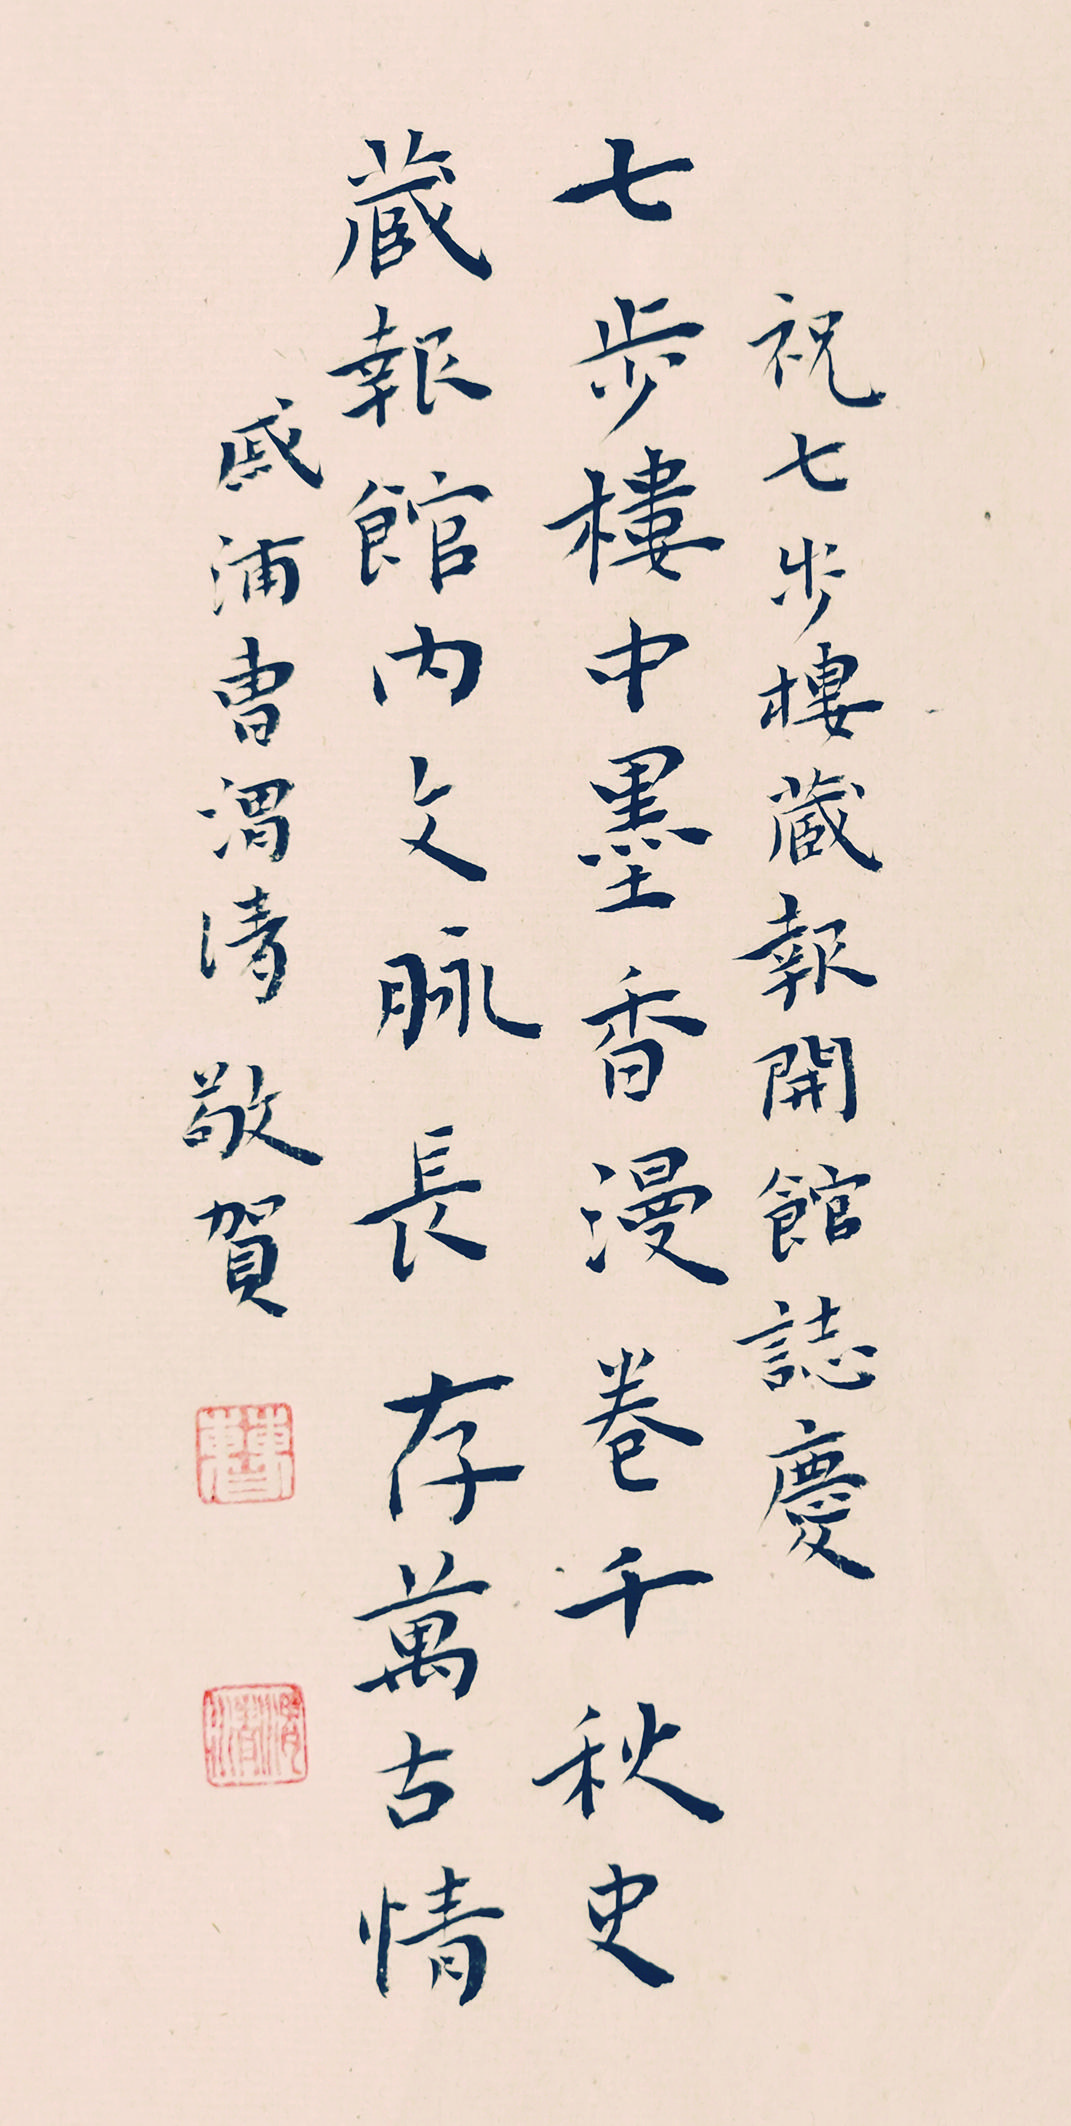 祝七步樓藏報開館誌慶
七步樓中墨香漫卷千秋史
藏報館内文脉長存萬古情
戚浦曹渭清敬賀
曹
渭清